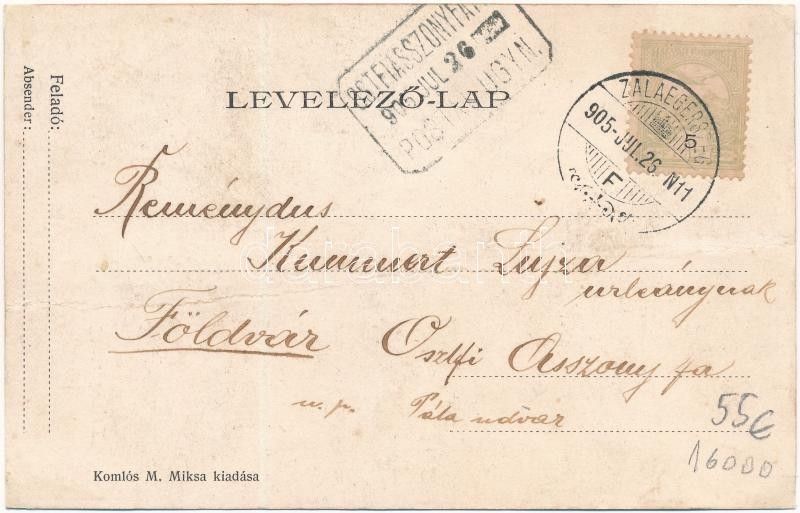 OSTFFIASSZONYFA
905 JUL 26
POSTAI ÜGYN.
LEVELEZŐ-LAP
ZALAEGERSZEG
905-JUL.26. N11
F
5
Feladó:
Absender:
Reménydus
Kummert Lujza
urleánynak
Földvár Osztfi Asszonyfa
u. p. Pála udvar
55€
16000
Komlós M. Miksa kiadása
darabanth